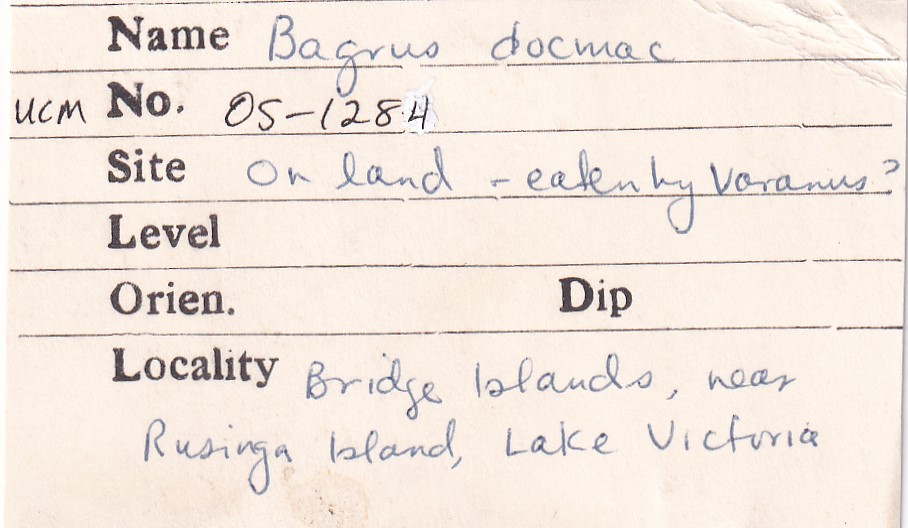 Name Bagrus docmac
UCM No. OS-1284
Site On land - eaten by Varanus?
Level
Orien. Dip
Locality Bridge Islands, near
Rusinga Island, Lake Victoria